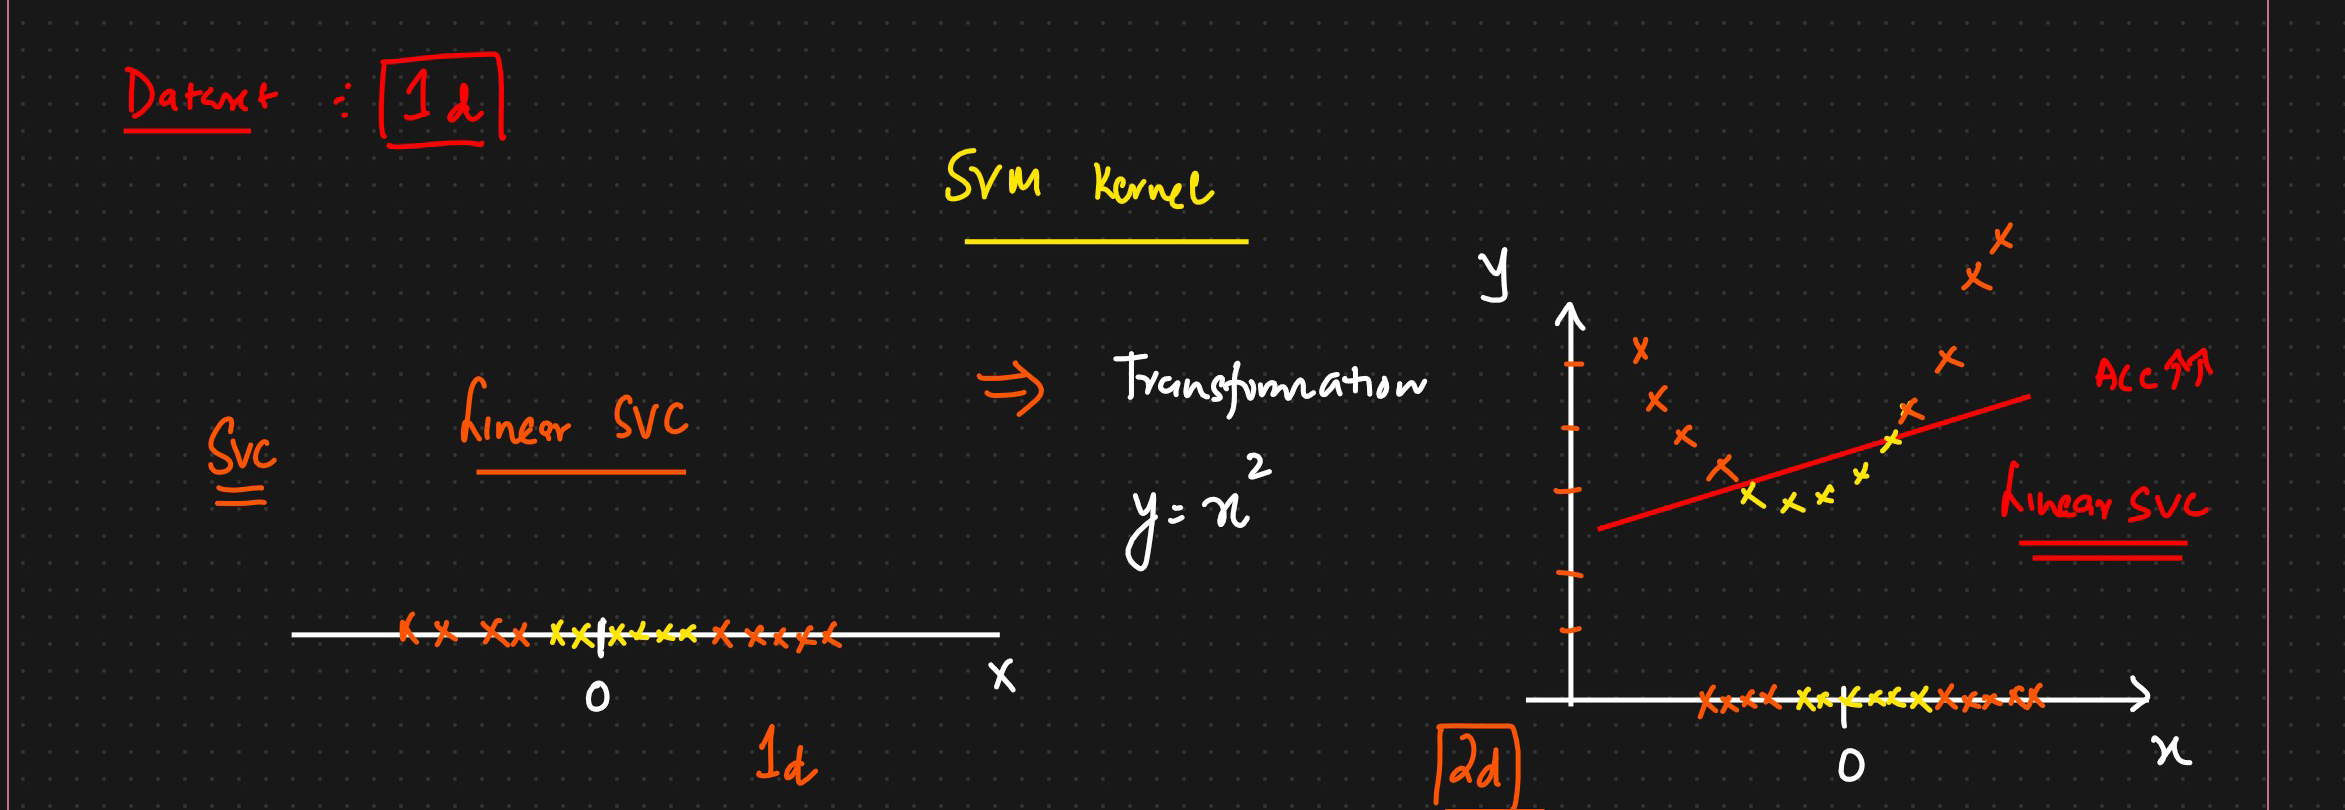 Dataset : 1d
SVM Kernel
SVC
Linear SVC
⇒ Transformation
y = x²
0
X
1d
y
Acc ↑↑
Linear SVC
0
x
2d